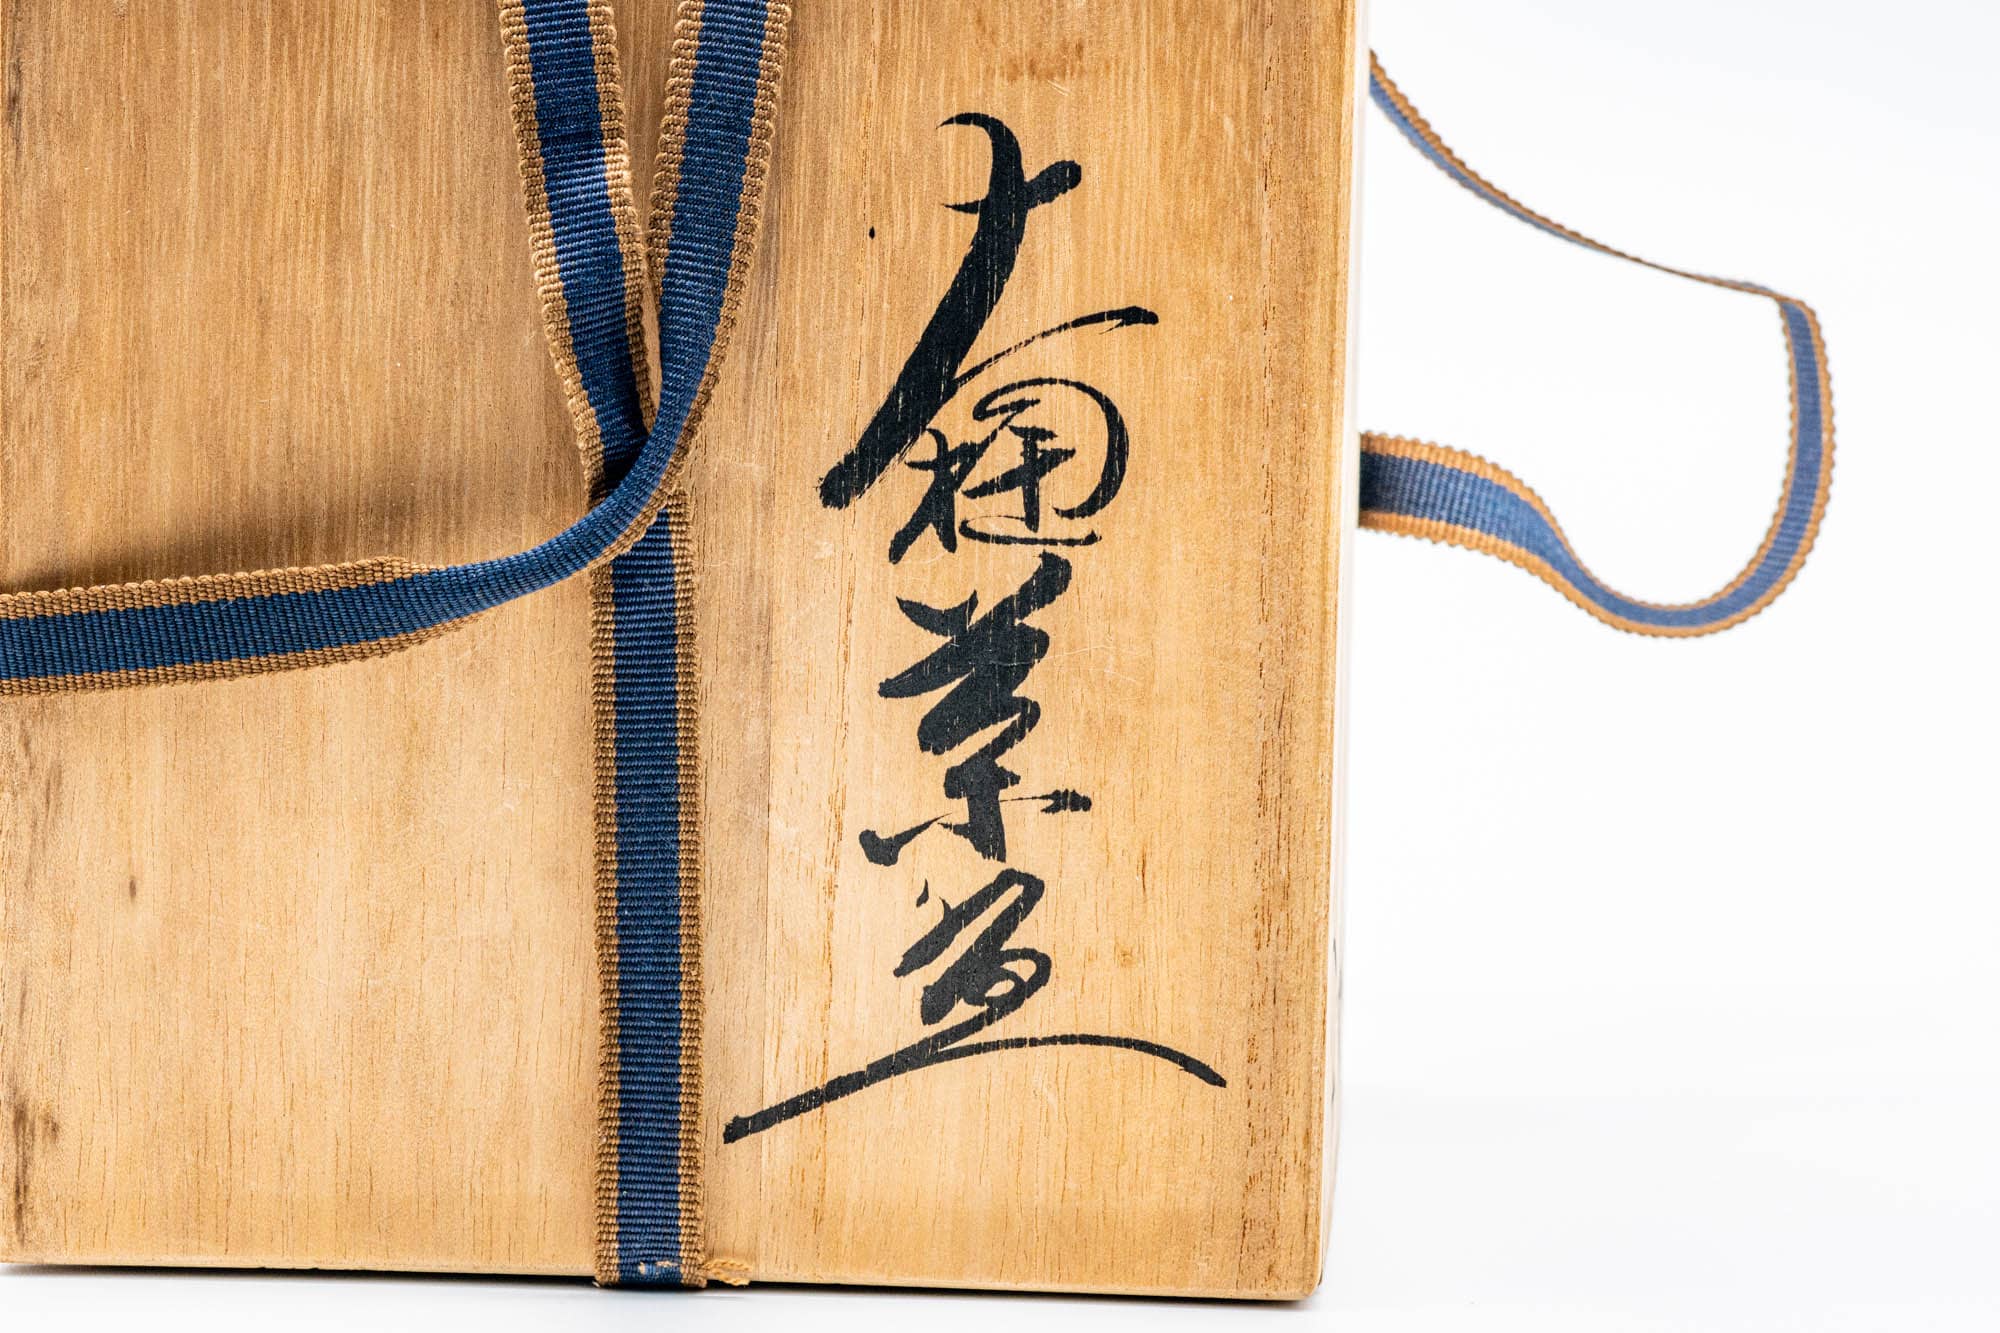 大樋茶盌